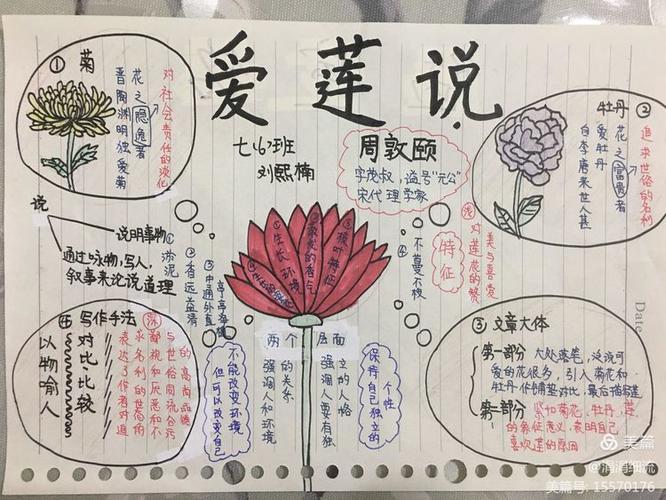 爱莲说
七(6)班
刘熙楠
① 菊
晋陶渊明独爱菊
花之隐逸者
对社会责任的淡化
② 牡丹
自李唐来世人甚
爱牡丹
花之富贵者
追求世俗的名利
周敦颐
字茂叔，谥号"元公"
宋代理学家
说
说明事物
通过咏物，写人，
叙事来论说道理
① 淤泥
② 香远益清
③ 中通外直
亭亭净植
④ 不蔓不枝
特征
对莲花的赞
美与喜爱
①生长环境
②散发的香气
③枝叶特征
两个层面
强调人和环境
的关系
强调人要有独
立的人格
不能改变环境
但可以改变自己
保持自己独立的
个性
④ 写作手法
对比·比较
以物喻人
表达了作者对追
求名利的世态的
鄙视和厌恶和不
与世俗同流合污
的高尚品德
③ 文章大体
第一部分 大处落笔，泛说可
爱的花很多，引入菊花和
牡丹作铺垫对比，最后描写莲
第二部分 紧扣菊花，牡丹，莲
的象征意义，表明自己
喜欢莲的原因
Date
美篇
@涓涓细流
美篇号：15570176